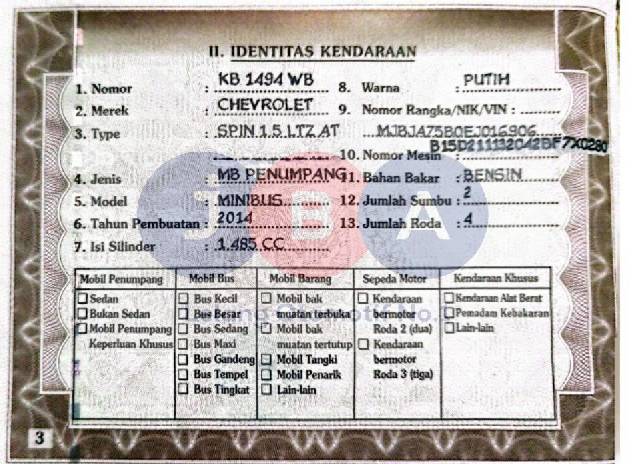 II. IDENTITAS KENDARAAN
1. Nomor : KB 1494 WB
2. Merek : CHEVROLET
3. Type : SPIN 1.5 LTZ AT
4. Jenis : MB PENUMPANG
5. Model : MINIBUS
6. Tahun Pembuatan : 2014
7. Isi Silinder : 1.485 CC
8. Warna : PUTIH
9. Nomor Rangka/NIK/VIN :
MJBJA75B0EJ016906
B15D211132042BF7X0280
10. Nomor Mesin :
11. Bahan Bakar : BENSIN
12. Jumlah Sumbu : 2
13. Jumlah Roda : 4
SBA
Mobil Penumpang
Sedan
Bukan Sedan
Mobil Penumpang
Keperluan Khusus
Mobil Bus
Bus Kecil
Bus Besar
Bus Sedang
Bus Maxi
Bus Gandeng
Bus Tempel
Bus Tingkat
Mobil Barang
Mobil bak
muatan terbuka
Mobil bak
muatan tertutup
Mobil Tangki
Mobil Penarik
Lain-lain
Sepeda Motor
Kendaraan
bermotor
Roda 2 (dua)
Kendaraan
bermotor
Roda 3 (tiga)
Kendaraan Khusus
Kendaraan Alat Berat
Pemadam Kebakaran
Lain-lain
3